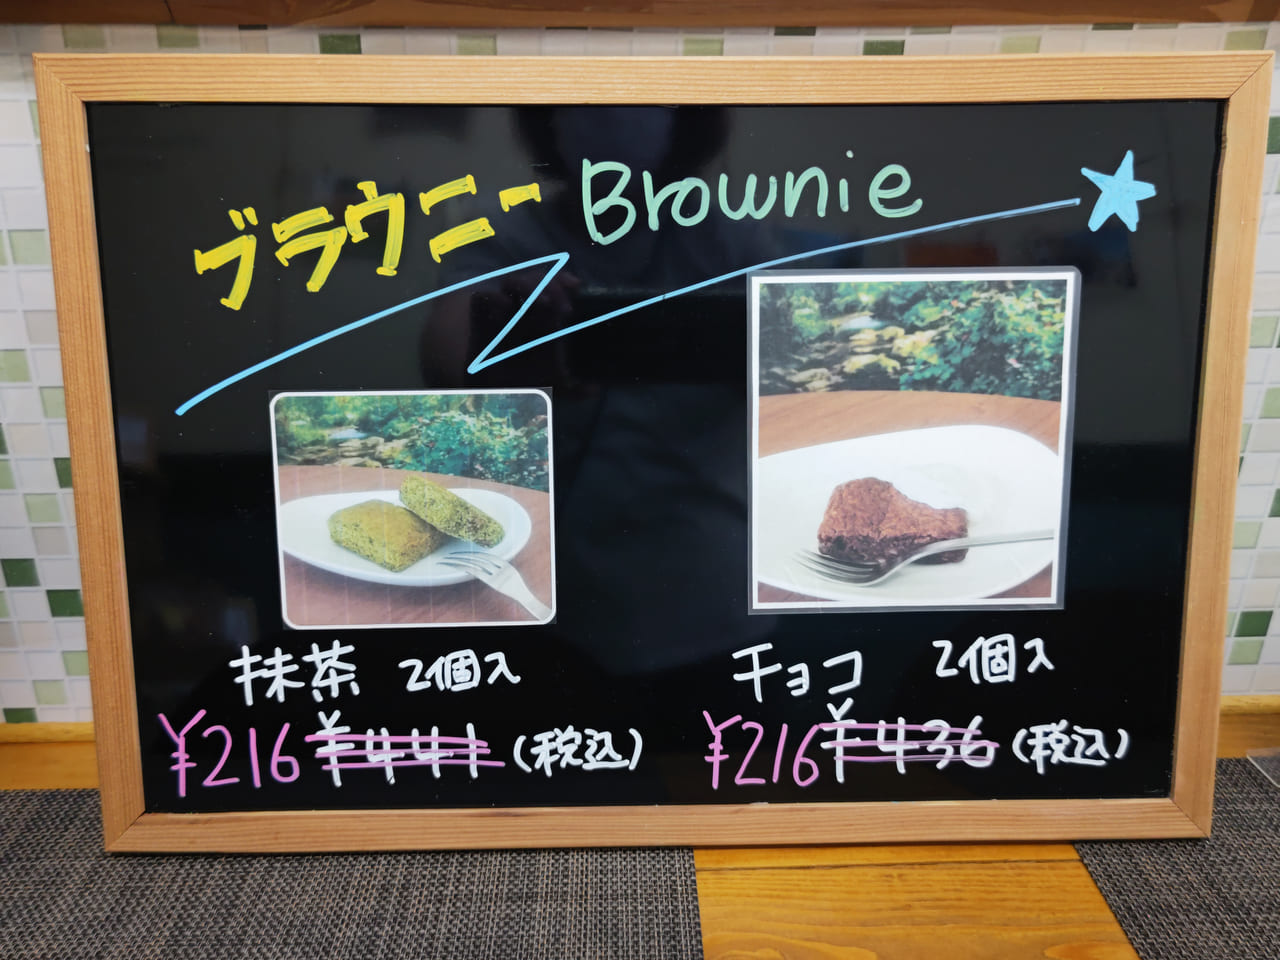 ブラウニー Brownie
抹茶 2個入
¥216 ¥441 (税込)
チョコ 2個入
¥216 ¥436 (税込)